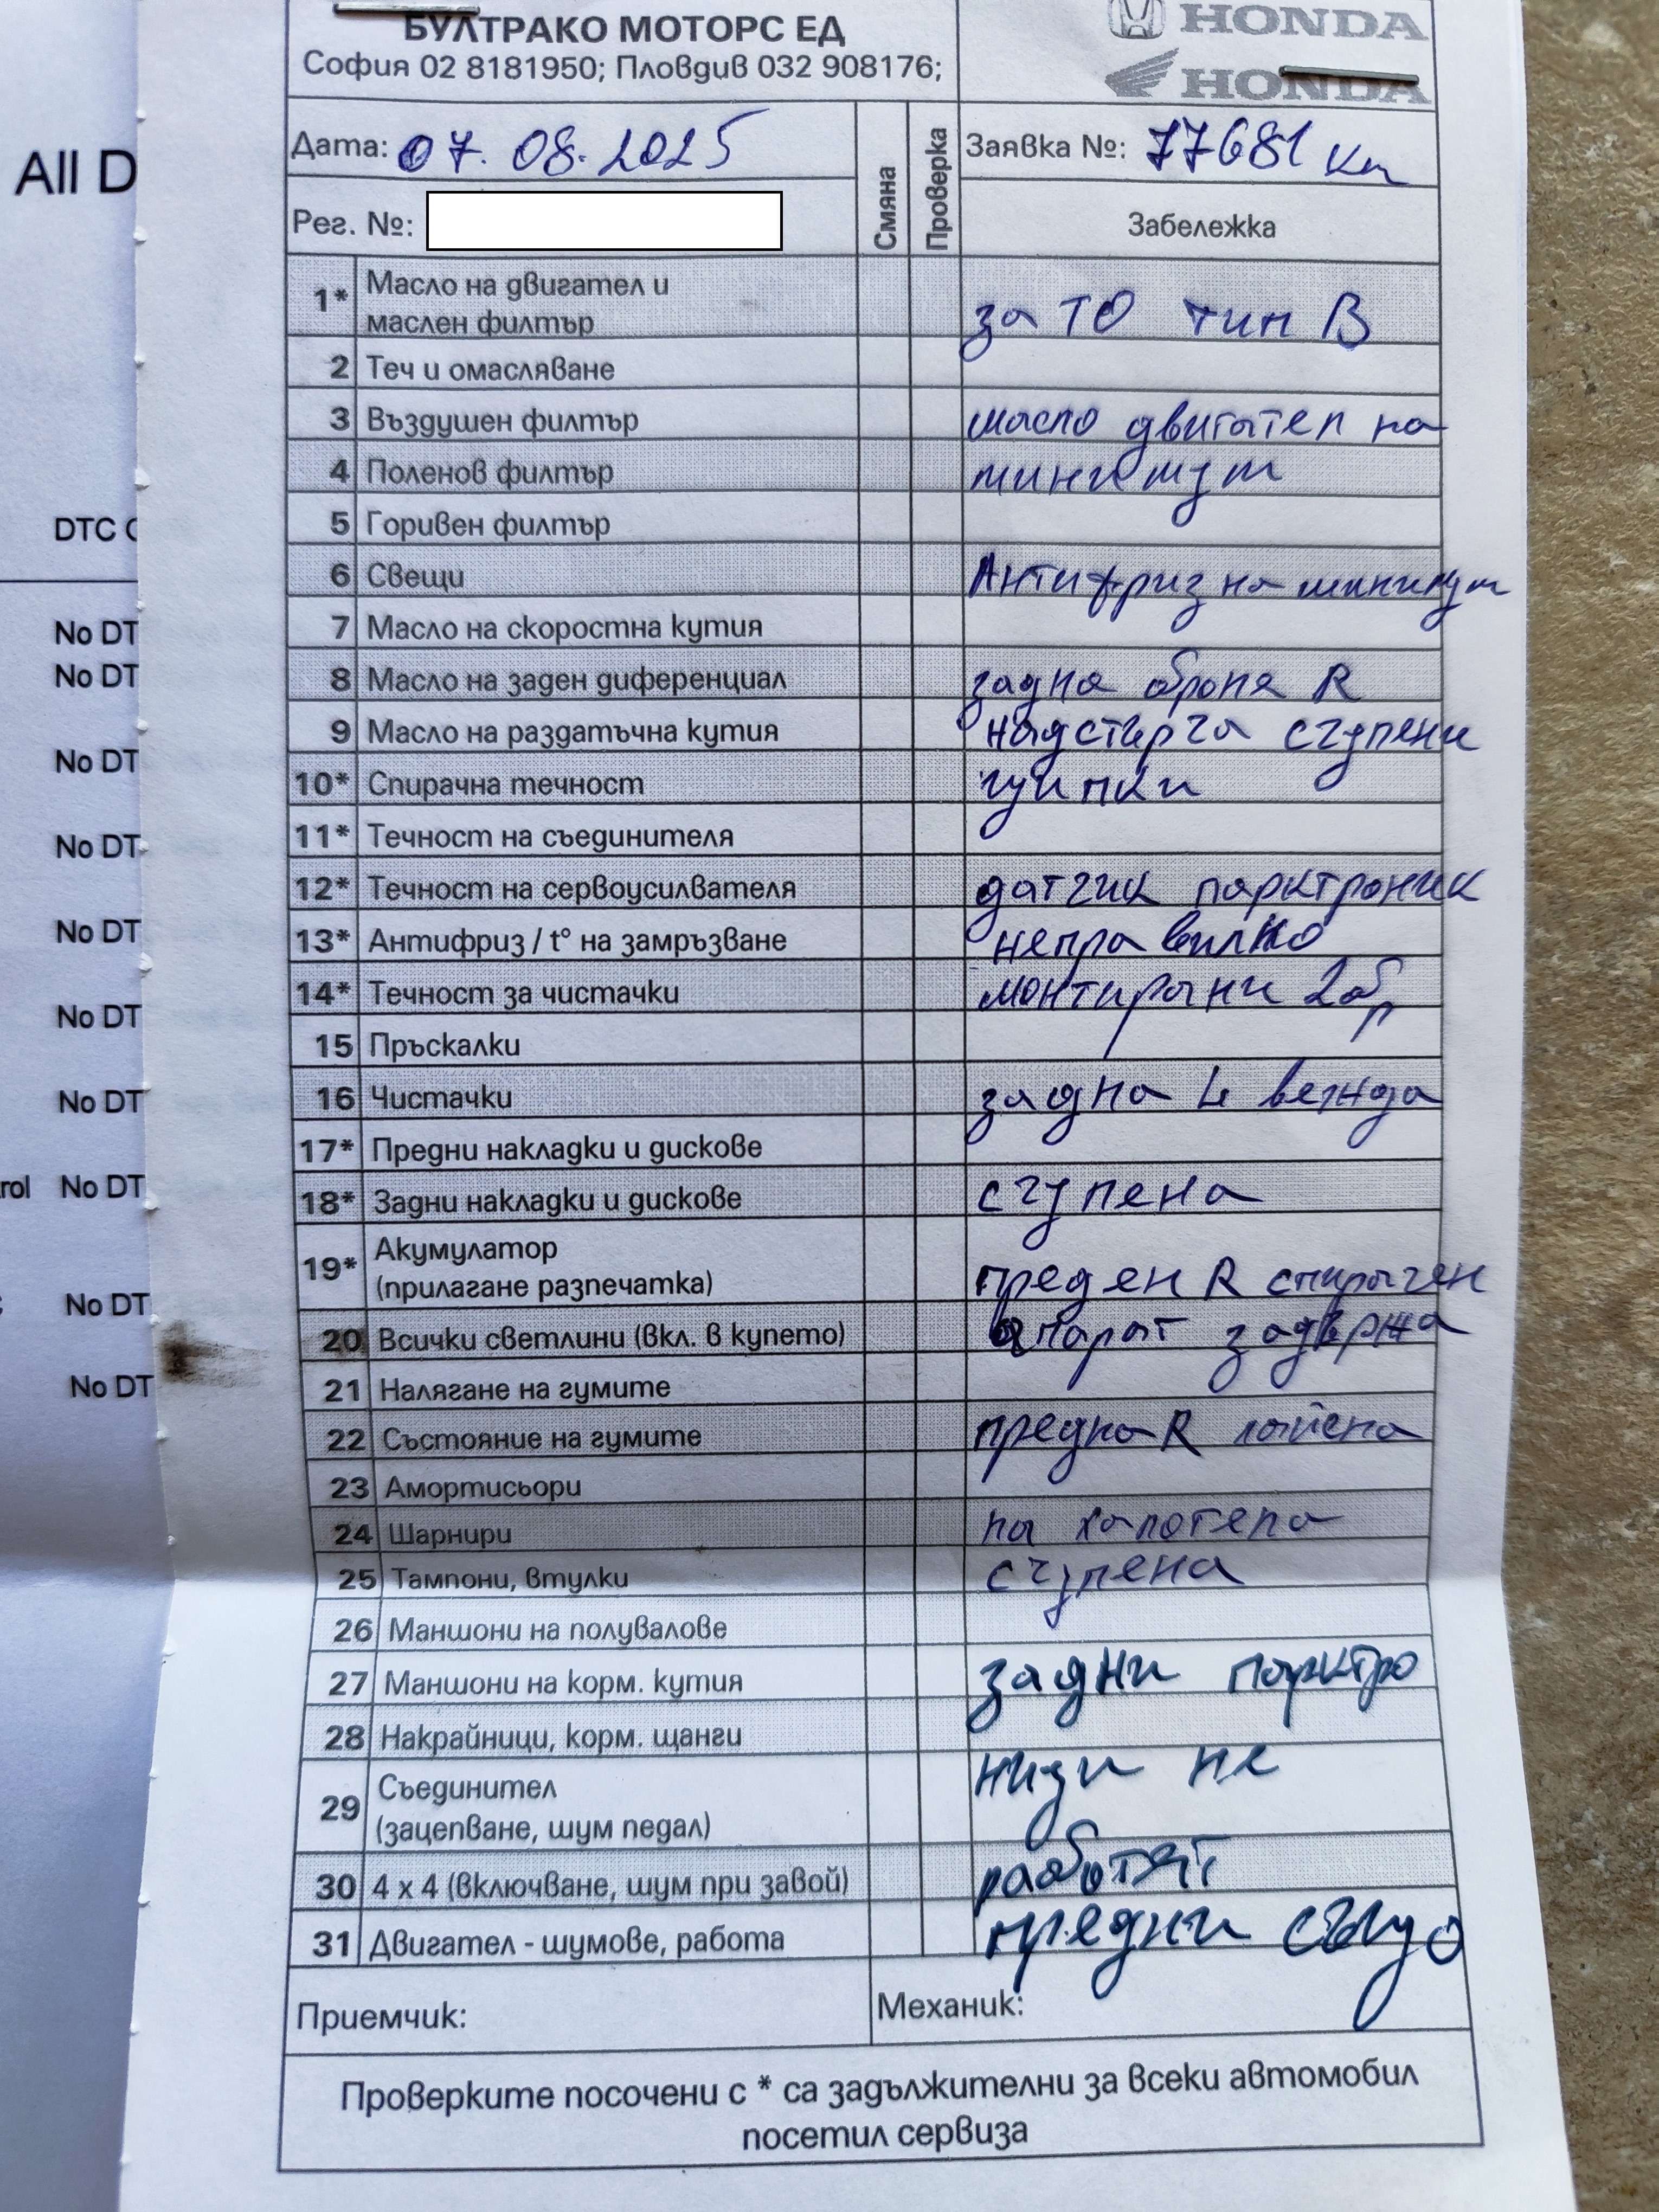 БУЛТРАКО МОТОРС ЕД
София 02 8181950; Пловдив 032 908176;
HONDA
HONDA
Дата: 07.08.2025
Смяна
Проверка
Заявка №: 77681 km
Рег. №:
Забележка
1* Масло на двигател и
маслен филтър
за ТО тип B
2 Теч и омасляване
3 Въздушен филтър масло двигател на
4 Поленов филтър минимум
5 Горивен филтър
6 Свещи Антифриз на минимум
7 Масло на скоростна кутия
8 Масло на заден диференциал задна броня R
9 Масло на раздатъчна кутия надстърга счупени
10* Спирачна течност щипки
11* Течност на съединителя
12* Течност на сервоусилвателя датчик парктроник
13* Антифриз / t° на замръзване неправилно
14* Течност за чистачки монтирани 2бр
15 Пръскалки
16 Чистачки задна L вежда
17* Предни накладки и дискове
18* Задни накладки и дискове счупена
19* Акумулатор
(прилагане разпечатка) преден R спирачен
20 Всички светлини (вкл. в купето) апарат задържа
21 Налягане на гумите
22 Състояние на гумите предна R лайсна
23 Амортисьори
24 Шарнири на капотела
25 Тампони, втулки счупена
26 Маншони на полувалове
27 Маншони на корм. кутия задни парктро
28 Накрайници, корм. щанги
29 Съединител
(зацепване, шум педал)
ници не
30 4 x 4 (включване, шум при завой) работят
31 Двигател - шумове, работа предни също
Приемчик:
Механик:
Проверките посочени с * са задължителни за всеки автомобил
посетил сервиза
All D
DTC
No DT
No DT
No DT
No DT
No DT
No DT
No DT
rol No DT
No DT
No DT